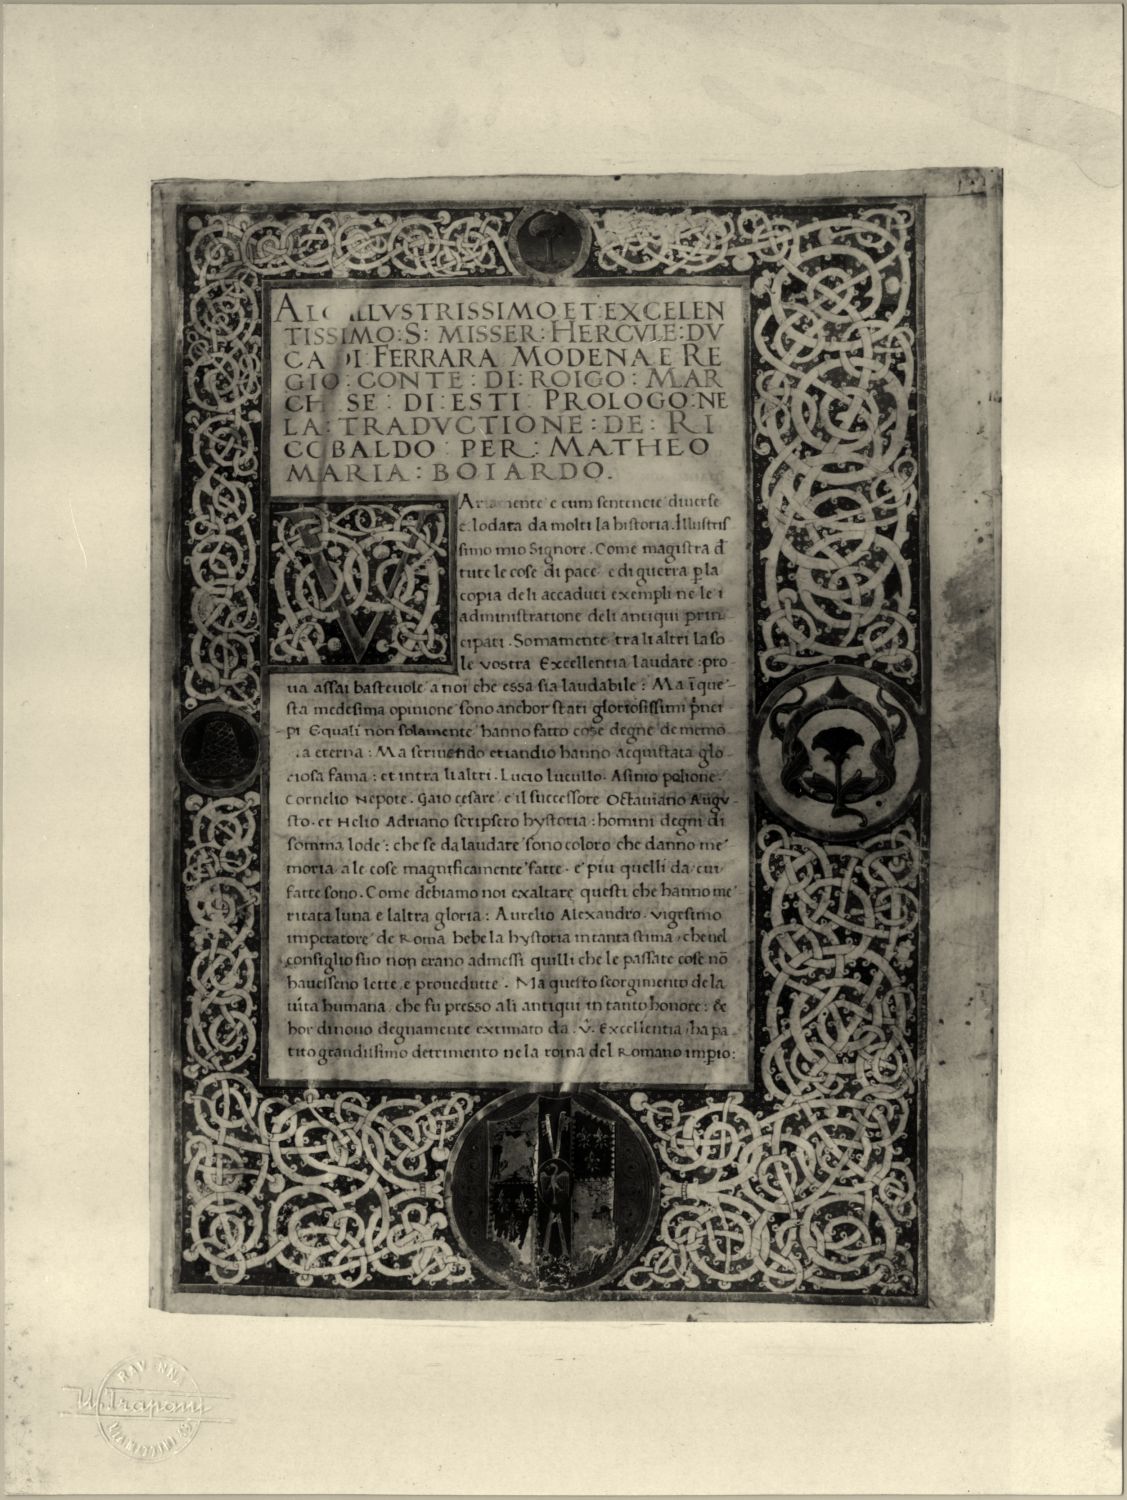 ALO ILLVSTRISSIMO ET: EXCELEN
TISSIMO: S: MISSER: HERCVLE: DV
CA DI FERRARA MODENA E RE
GIO: CONTE: DI: ROIGO: MAR
CH SE: DI: ESTI PROLOGO: NE
LA: TRADVCTIONE: DE: RI
COBALDO PER: MATHEO
MARIA: BOIARDO.
V
Ariamente e cum sentencie diuerse
e. lodata da molti la historia. Illustris
simo mio Signore. Come magistra d̄
tute le cose di pace e di guerra p̱ la
copia deli accaduti exempli ne le i
administratione deli antiqui prin-
cipati. Somamente tra li altri la so
le vostra Excellentia laudare: pro-
ua assai basteuole a noi che essa sia laudabile: Ma ī que-
sta medesima opinione sono anchor stati gloriosissimi p̄nci
pi E quali non solamente hanno fatto cose degne de memo
ia eterna: Ma scriuendo etiandio hanno acquistata glo-
riosa fama: et intra li altri. Lucio lucullo. Asinio polione.
Cornelio Nepote. Gaio cesare e il successore Octauiano Augu-
sto. et Helio Adriano scripsero hystoria: homini degni di
somma lode: che se da laudare sono coloro che danno me
moria a le cose magnificamente fatte. e piu quelli da cui
fatte sono. Come debiamo noi exaltare questi che hanno me
ritata luna e laltra gloria: Aurelio Alexandro. vigesimo
imperatore de Roma hebe la hystoria in tanta stima, che nel
consiglio suo non erano admessi quilli che le passate cose nō
hauesseno lette e prouedutte. Ma questo scorgimento de la
uita humana, che fu presso ali antiqui in tanto honore: &
hor di nouo degnamente extimato da .V. Excellentia, ha pa-
tito grandissimo detrimento ne la roina del Romano imp̱io:
RAVENNA
U. Trapani